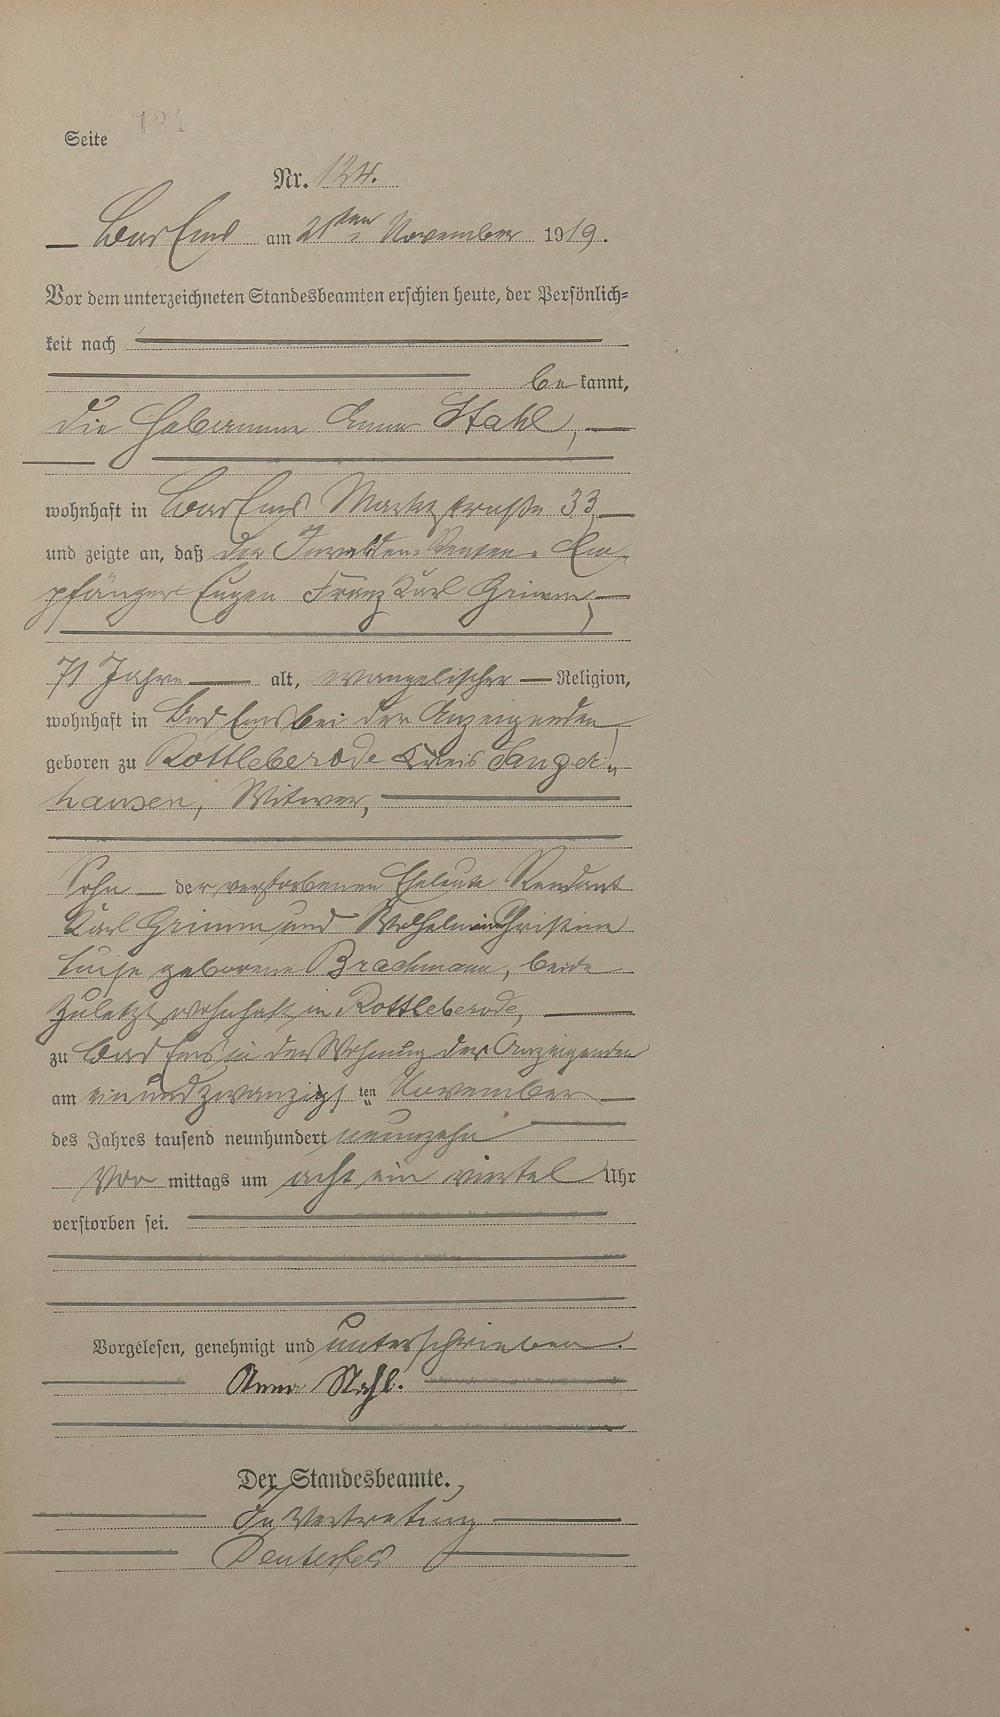 Seite 124
Nr. 124.
Bad Ems am 21ten November 1919.
Vor dem unterzeichneten Standesbeamten erschien heute, der Persönlich=
keit nach
be kannt,
die Hebamme Anna Stahl,
wohnhaft in Bad Ems Marktstraße 33
und zeigte an, daß der Invaliden-Renten-Em
pfänger Eugen Franz Karl Grimm,
71 Jahre alt, evangelischer Religion,
wohnhaft in Bad Ems bei der Anzeigenden,
geboren zu Rottleberode Kreis Sanger„
hausen, Witwer,
Sohn der verstorbenen Eheleute Rendant
Karl Grimm und Wilhelmine Christine
Luise geborene Brachmann, beide
zuletzt wohnhaft in Rottleberode,
zu Bad Ems in der Wohnung der Anzeigenden
am ein und zwanzigsten November
des Jahres tausend neunhundert neunzehn
Vor mittags um acht ein viertel Uhr
verstorben sei.
Vorgelesen, genehmigt und unterschrieben.
Anna Stahl.
Der Standesbeamte.
In Vertretung